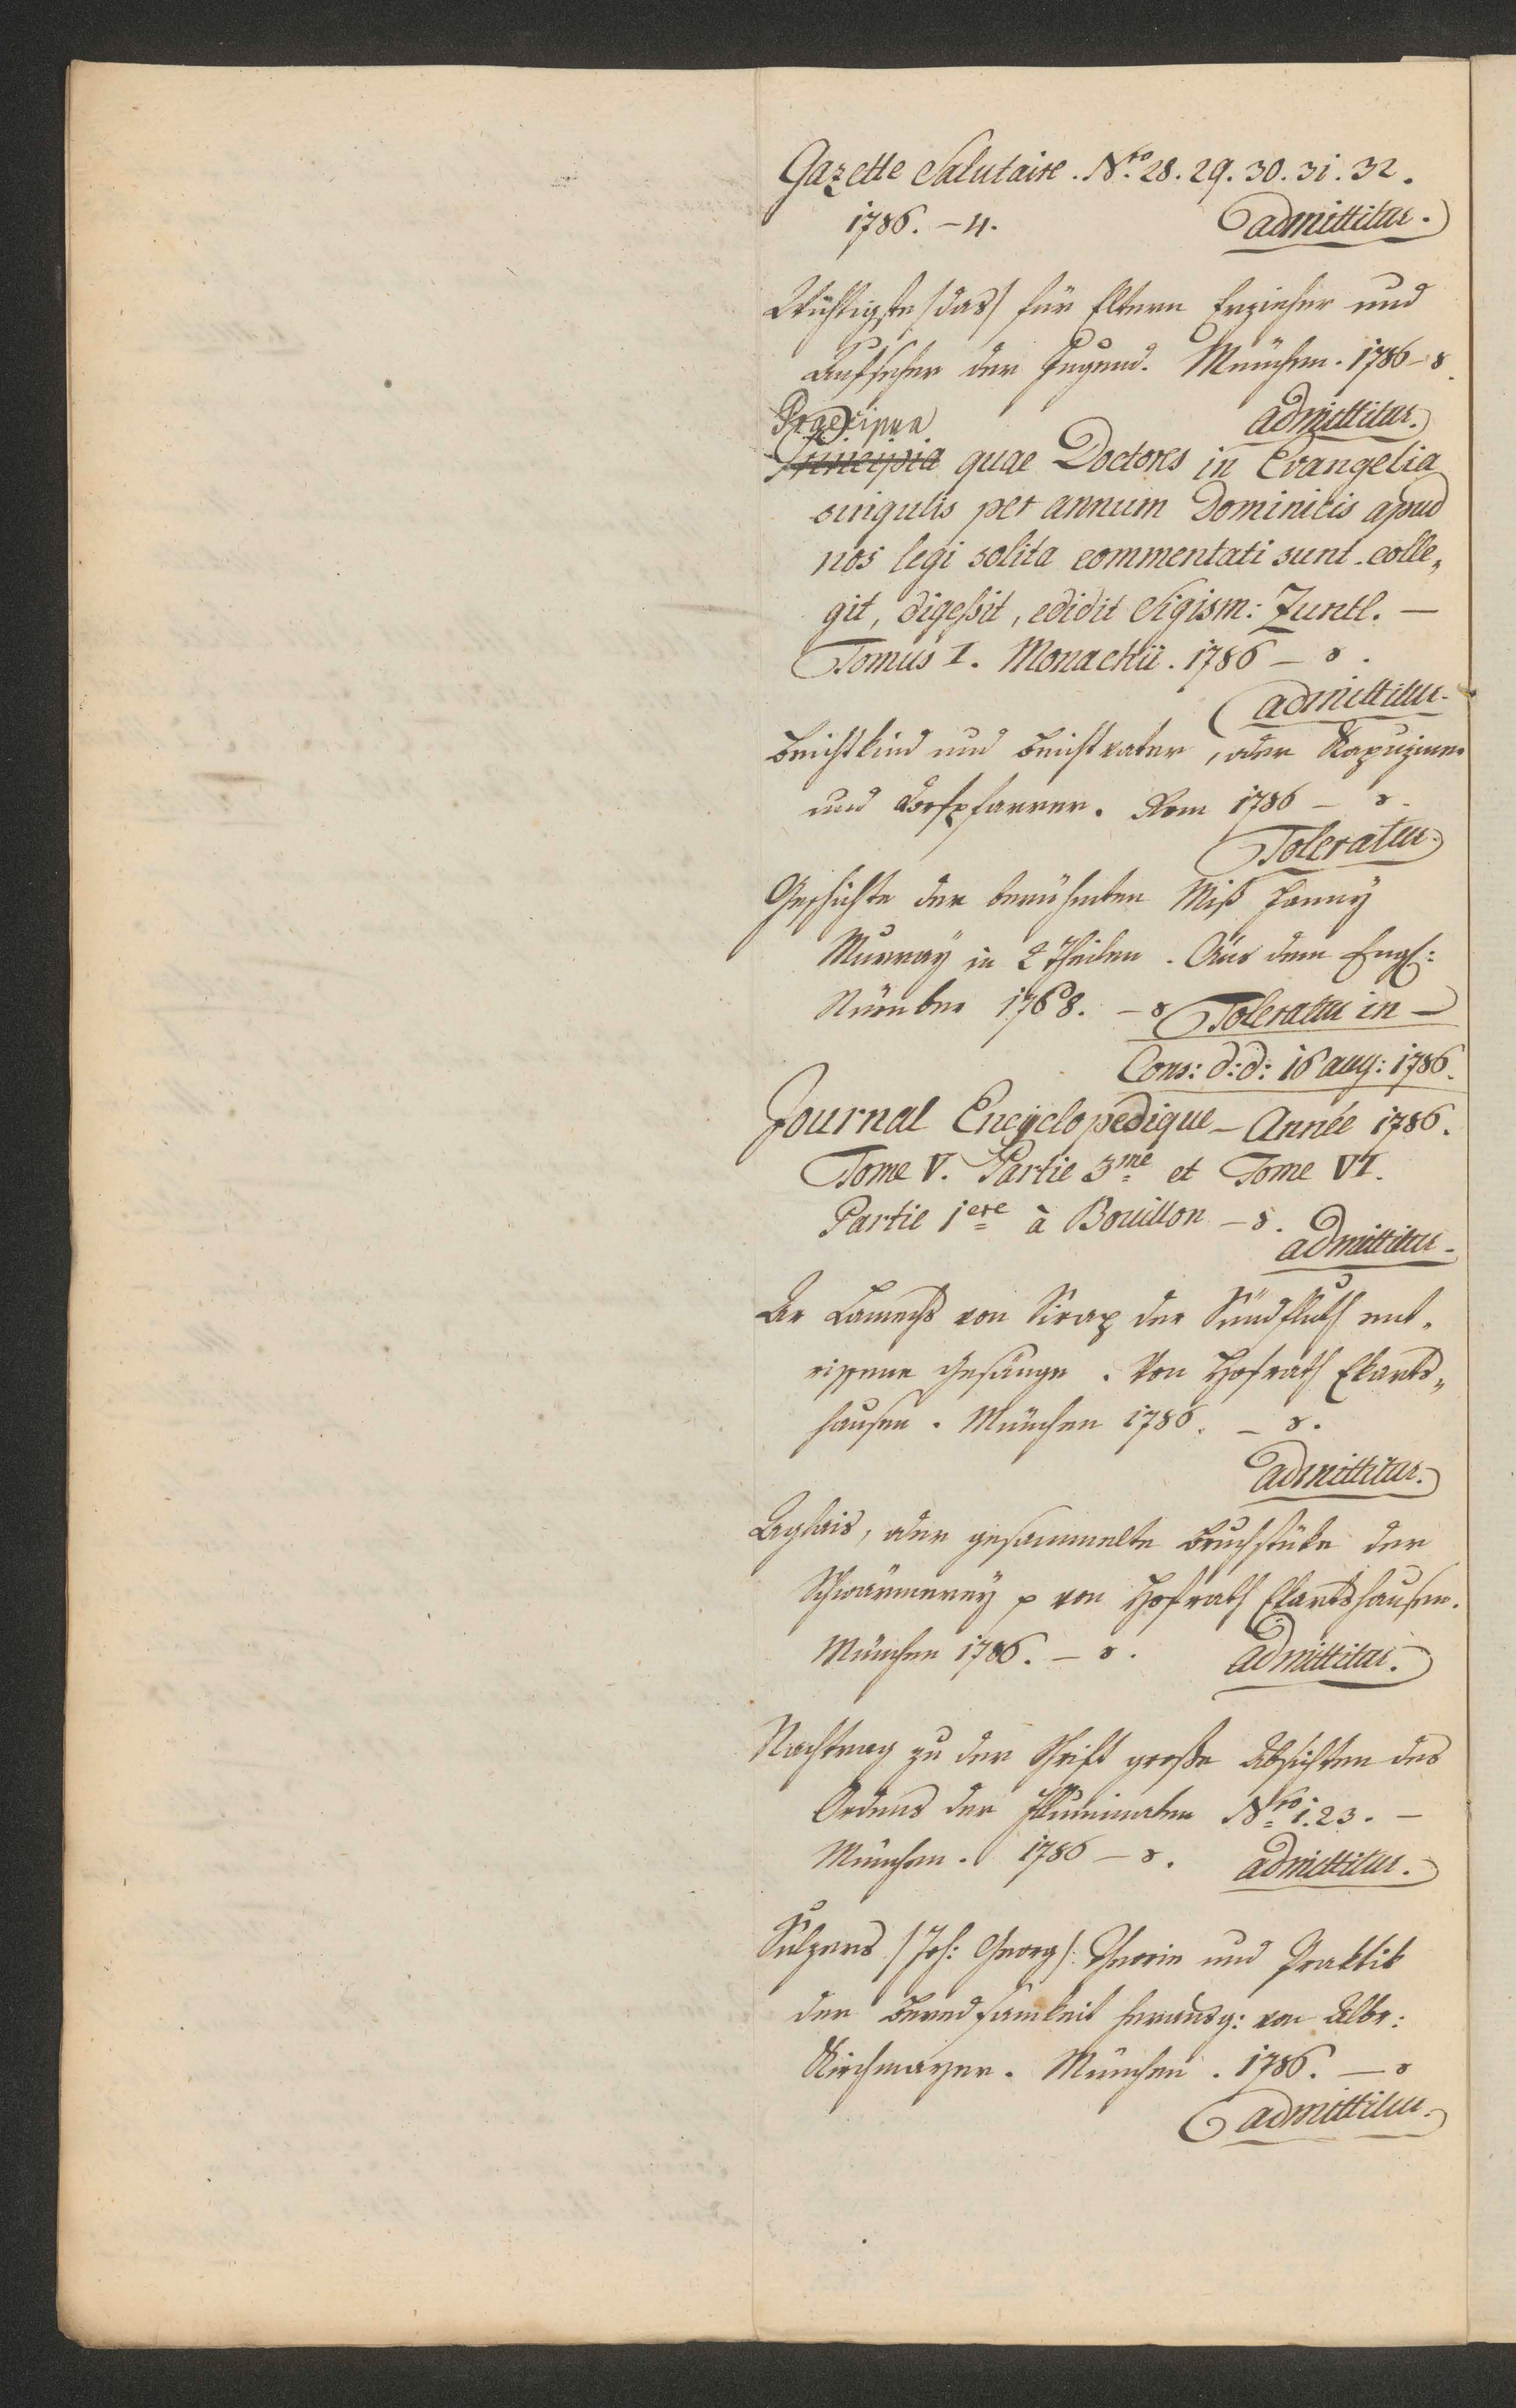 Gazette Salutaire. Nro 28. 29. 30. 31. 32.
1786. – 4. admittitur.
Wichtigste /das/ für Eltern Erzieher und
Aufseher der Jugend. München. 1786 – 8.
admittitur.
Praecipua
Principia quae Doctores in Evangelia
singulis per annum Dominicis apud
nos legi solita commentati sunt. colle„
git, digeßit, edidit Sigism: Zuntl. –
Tomus I. Monachii. 1786 – 8.
admittitur.
Beichtkind und Beichtvater, oder Kapuziner
und Dorfpfarrer. Rom 1786 – 8.
Toleratur.
Geschichte der berühmten Miß Fanny
Murray in 2 Theilen. Aus dem Engl:
Nürnber 1768. – 8 Toleratur in –
Cons: d: d: 16 aug: 1786.
Journal Encyclopedique – Année 1786.
Tome V. Partie 3me et Tome VI.
Partie 1ere à Bouillon – 8.
admittitur.
Lamechs von Sirap der Sündfluth ent„
rissene Gesänge. Von Hofrath Ekarts„
hausen. München 1786. – 8.
admittitur.
Aglais, oder gesammelte Bruchstüke der
Schwärmerey p von Hofrath Ekartshausen.
München 1786. – 8. admittitur.
Nachtrag zu der Schrift große Absichten des
Ordens der Illuminaten Nro 1. 2 3. –
München. 1786 – 8. admittitur.
Sulzers /Joh: Georg/: Theorie und Praktik
der Beredsamkeit herausg: von Albr:
Kirchmayer. München. 1786. – 8
admittitur.